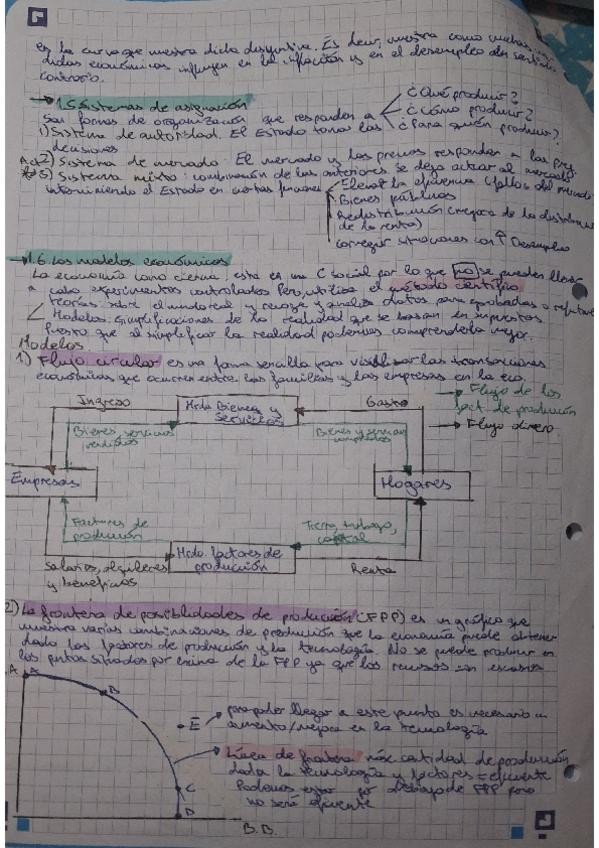 es la curva que muestra dicha disyuntiva. Es decir, muestra como muchas
didas económicas influyen en la inflación y en el desempleo en sentido
contrario.
→ 1.5 Sistemas de asignación
Son formas de organización que responden a
¿Qué producir?
¿Cómo producir?
¿Para quién producir?
1) Sistema de autoridad. El Estado toma las
decisiones
2) Sistema de mercado: El mercado y los precios responden a las preg.
3) Sistema mixto: combinación de los anteriores se deja actuar al mercado
interviniendo el Estado en ciertas funciones
Elevar la eficiencia (fallos del mercado
Bienes públicos
Redistribución (mejora de la distribu
de la renta)
corregir situaciones con ↑ Desempleo
→ 1.6 Los modelos económicos
La economía como ciencia, esta es una C social por lo que no se pueden llevar
a cabo experimentos controlados Pero, utiliza el método científico
teorías sobre el mundo real y recoge y analiza datos para aprobarlas o refutar
Modelos: simplificaciones de la realidad que se basan en supuestos
puesto que al simplificar la realidad podemos comprenderla mejor.
Modelos
1) Flujo circular es una forma sencilla para visibilizar las transacciones
económicas que ocurren entre las familias y las empresas en la eco.
→ Flujo de los
fact. de producción
→ Flujo dinero
Ingreso
Mrdo Bienes y
Servicios
Gasto
Bienes, servicios
vendidos
Bienes y servicios
comprados
Empresas
Hogares
Factores de
producción
Tierra, trabajo,
capital
Mrdo. factores de
producción
Salarios, alquileres
y beneficios
Renta
2) La frontera de posiblidades de producción (FPP) es un gráfico que
muestra varias combinaciones de producción que la economía puede obtener
dado los factores de producción y la tecnología. No se puede producir en
los puntos situados por encima de la FPP ya que los recursos son escasos
A
A
B
E → para poder llegar a este punto es necesario un
aumento/mejora en la tecnología
Línea de frontera máx cantidad de producción
dada la tecnología y factores = eficiente
Podemos estar por debajo de FPP pero
no será eficiente
C
D
B.B.